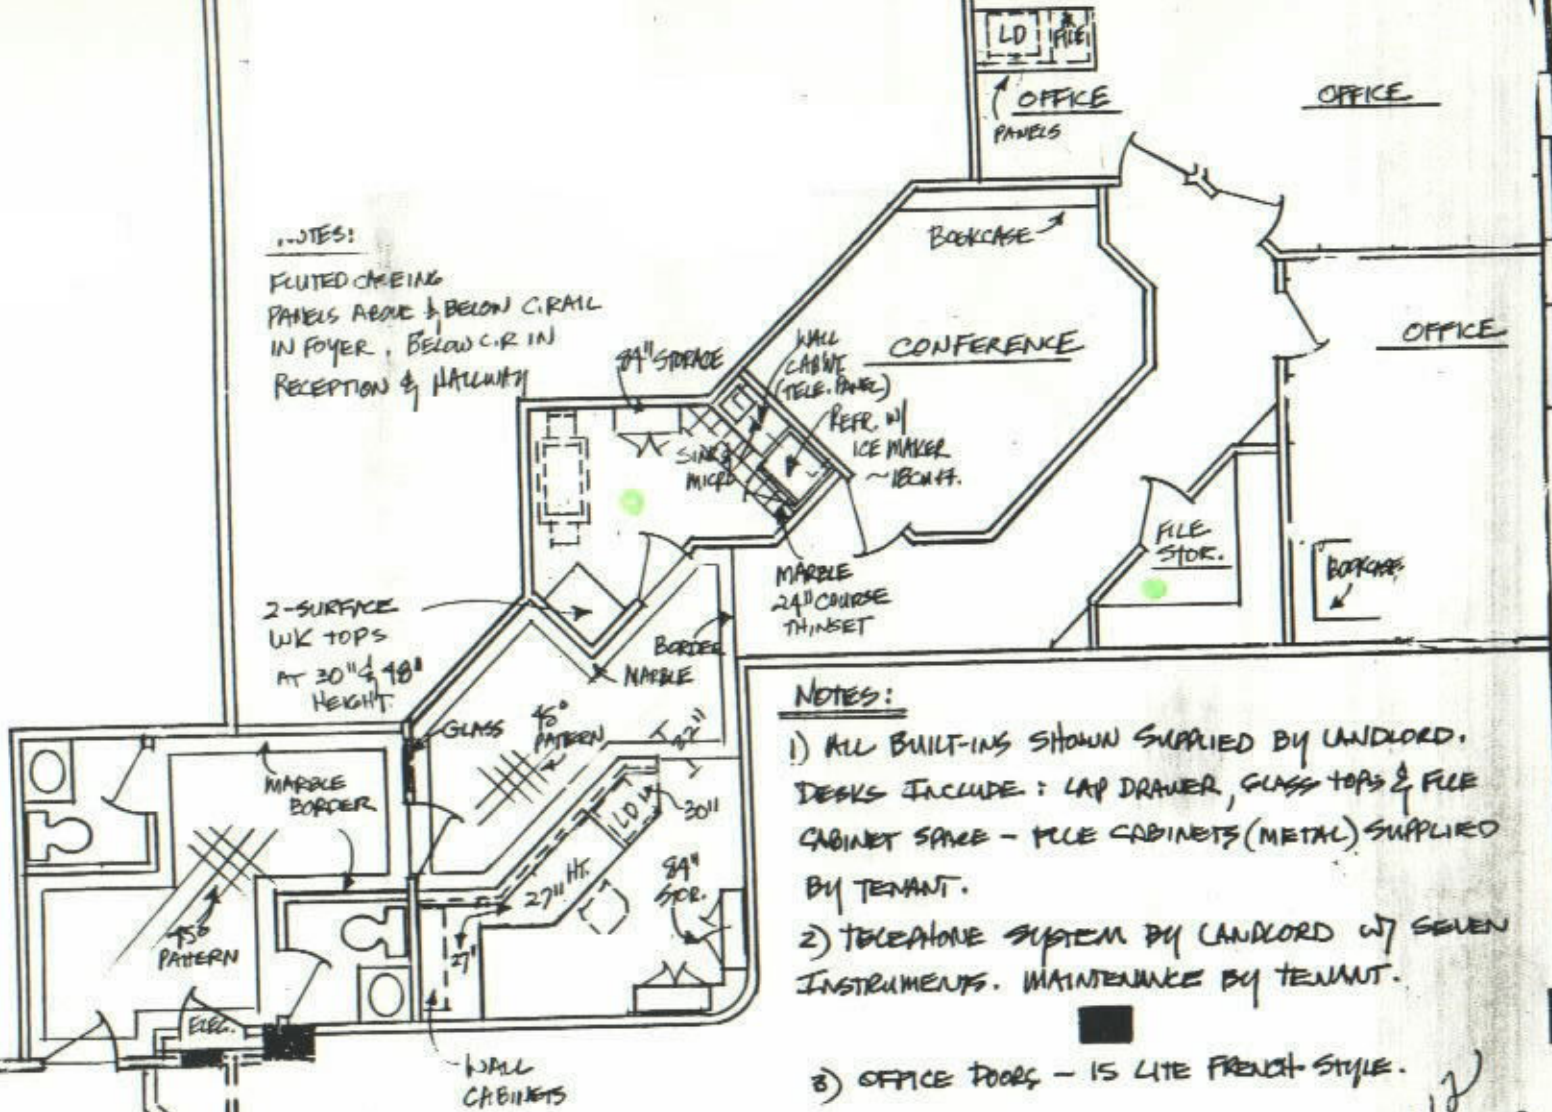 LD
FILE
OFFICE
PANELS
OFFICE
BOOKCASE
OFFICE
CONFERENCE
NOTES:
FLUTED CASEING
PANELS ABOVE & BELOW C.RAIL
IN FOYER. BELOW C.R IN
RECEPTION & HALLWAY
84" STORAGE
WALL
CABINT
(TELE. PANEL)
REFR. W/
ICE MAKER
~18CU FT.
SINK &
MICRO
FILE
STOR.
BOOKCASE
MARBLE
24" COURSE
THINSET
2-SURFACE
WK TOPS
AT 30" & 48"
HEIGHT.
BORDER
MARBLE
GLASS
45°
PATTERN
22"
MARBLE
BORDER
LD
30"
27" HT.
84"
STOR.
27"
45°
PATTERN
ELEC.
WALL
CABINETS
NOTES:
1) ALL BUILT-INS SHOWN SUPPLIED BY LANDLORD.
DESKS INCLUDE: LAP DRAWER, GLASS TOPS & FILE
CABINET SPACE - FILE CABINETS (METAL) SUPPLIED
BY TENANT.
2) TELEPHONE SYSTEM BY LANDLORD W/ SEVEN
INSTRUMENTS. MAINTENANCE BY TENANT.
3) OFFICE DOORS - 15 LITE FRENCH STYLE.